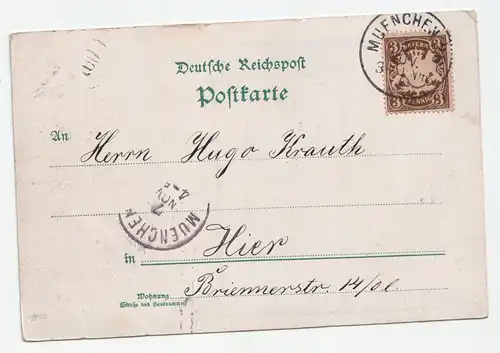 MUENCHEN
BAYERN
3 3
PFENNIG
Deutsche Reichspost
Postkarte
An Herrn Hugo Krauth
MUENCHEN
7
NOV
4-5
in Hier
Wohnung Briennerstr. 14/0l.
(Straße und Hausnummer)